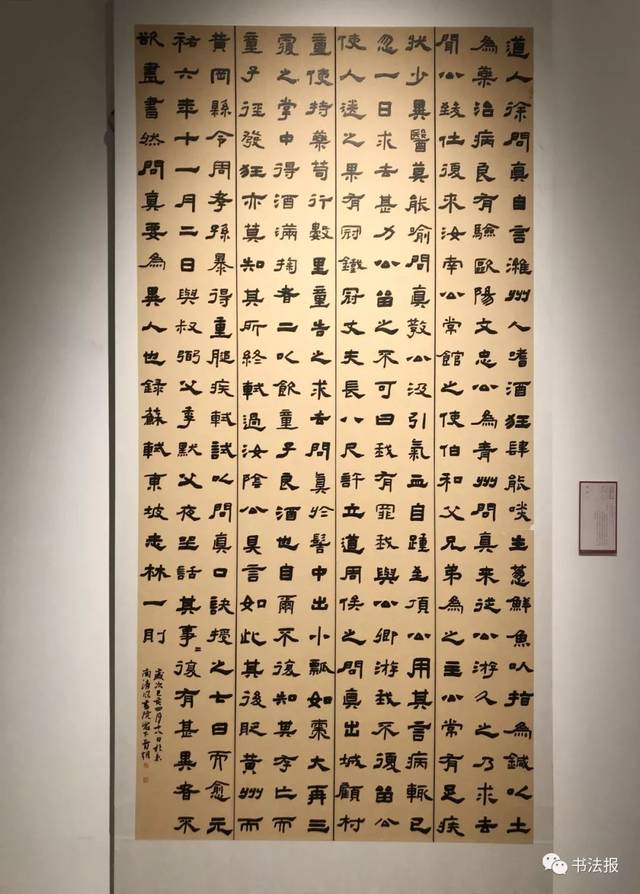 道人徐問真自言濰州人嗜酒狂肆能啖生蔥鮮魚以指為鍼以土
為藥治病良有驗歐陽文忠公為青州問真來從公游久之乃求去
聞公致仕復來汝南公常館之使伯和父兄弟為之主公常有足疾
狀少異醫莫能喻問真教公汲引氣血自踵至頂公用其言病輒已
忽一日求去甚力公留之不可曰我有罪我與公卿游我不復留公
使人送之果有冠鐵冠丈夫長八尺許立道周俟之問真出城顧村
童使持藥笥行數里童告之求去問真於髻中出小瓢如棗大再三
覆之掌中得酒滿掬者二以飲童子良酒也自爾不復知其存亡而
童子徑發狂亦莫知其所終軾過汝陰公具言如此其後貶黃州而
黃岡縣令周孝孫暴得重膇疾軾試以問真口訣授之七日而愈元
祐六年十一月二日與叔弼父季默父夜坐話其事〻復有甚異者不
欲盡書然問真要為異人也錄蘇軾東坡志林一則
歲次己亥四月十八日於京
书法报